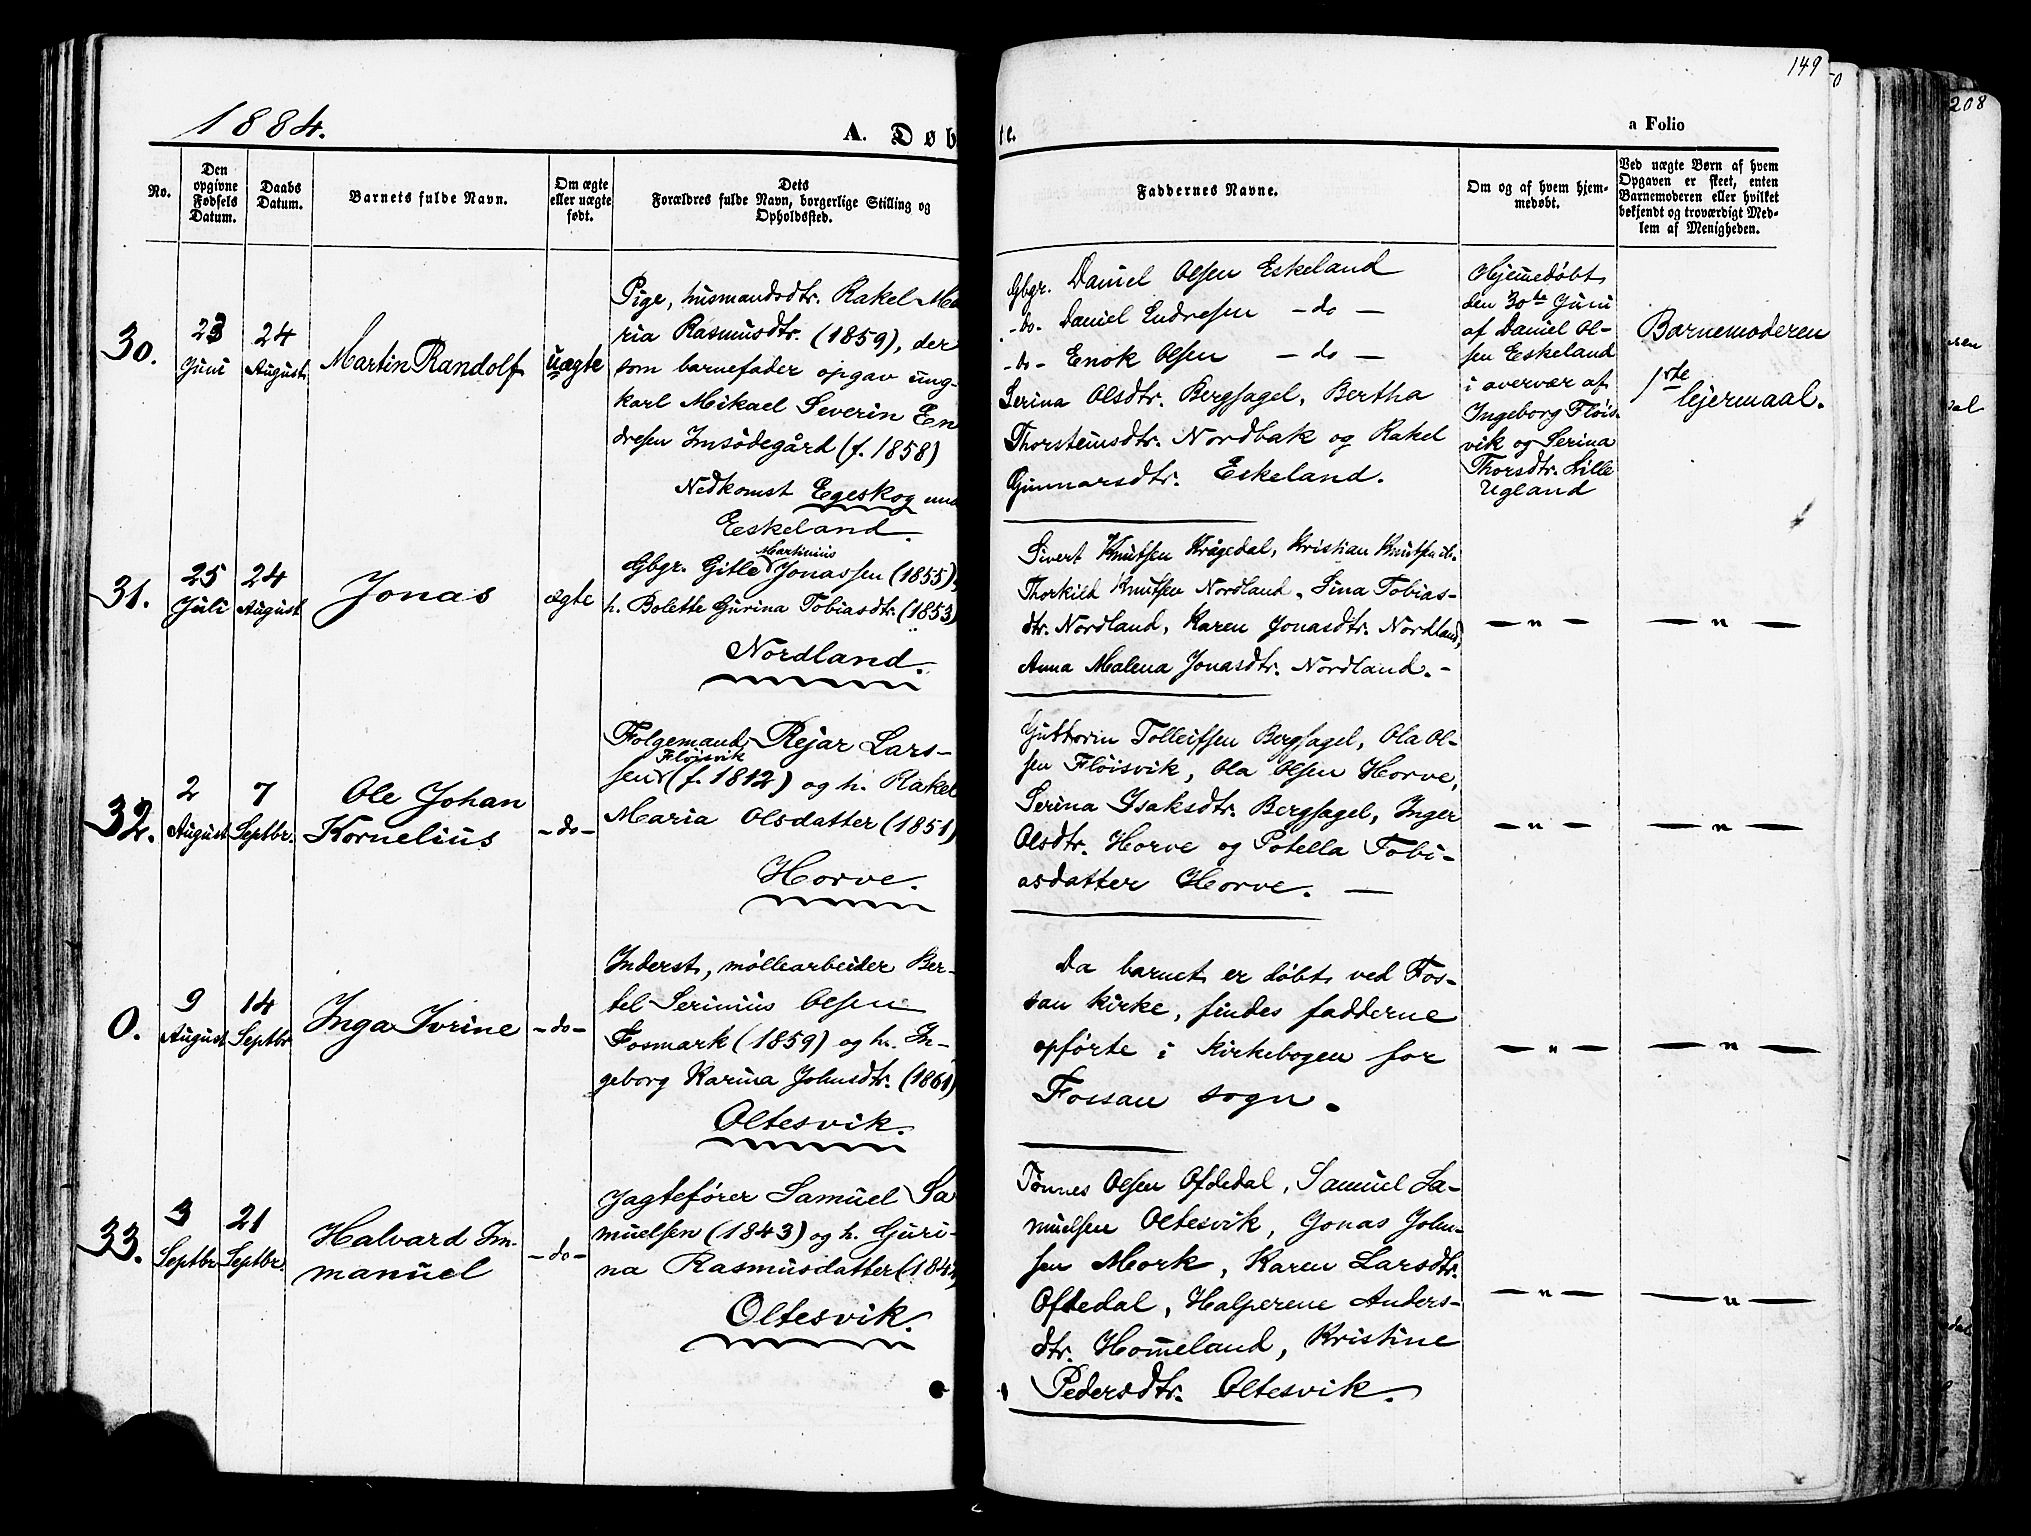 149
208
1884.
A. Døbte.
a Folio
No.
Den opgivne Fødsels Datum.
Daabs Datum.
Barnets fulde Navn.
Om ægte eller uægte født.
Dets Forældres fulde Navn, borgerlige Stilling og Opholdssted.
Faddernes Navne.
Om og af hvem hjemmedøbt.
Ved uægte Børn af hvem
Opgaven er skeet, enten
Barnemoderen eller hvilket
bekjendt og troværdigt Med-
lem af Menigheden.
30.
23 Juni
24 August
Martin Randolf
uægte
Pige, husmandsdtr. Rakel Ma
ria Rasmusdtr. (1859), der
som barnefader opgav ung-
karl Mikael Severin En
dresen Imsödegård (f. 1858)
Nedkomst Egeskog und
Eskeland.
Gbgr. Daniel Olsen Eskeland
-do- Daniel Endresen -do-
-do- Enok Olsen -do-
Serina Olsdtr. Bergsagel, Bertha
Thorsteinsdtr. Nordbak og Rakel
Gunnarsdtr. Eskeland.
Hjemmedøbt
den 30te Juni
af Daniel Ol-
sen Eskeland
i overvær af
Ingeborg Fløis-
vik og Serina
Thorsdtr. Lille
Ugland
Barnemoderen
1ste lejermaal.
31.
25 Juli
24 August
Jonas
ægte
Gbgr. Gitle Martinius Jonassen (1855),
h. Bolette Gurina Tobiasdtr. (1853)
Nordland.
Sivert Knutsen Krågedal, Kristian Knutsen ib.
Thorkild Knutsen Nordland, Sina Tobias-
dtr. Nordland, Karen Jonasdtr. Nordland,
Anna Malena Jonasdtr. Nordland. -
- " -
- " -
32.
2 August
7 Septbr.
Ole Johan
Kornelius
-do-
Følgemand Rejar Lars-
sen Fløisvik (f. 1812) og h. Rakel
Maria Olsdatter (1851)
Horve.
Guttorm Tolleifsen Bergsagel, Ola Ol-
sen Fløisvik, Ola Olsen Horve,
Serina Isaksdtr. Bergsagel, Inger
Olsdtr. Horve og Potella Tobi-
asdatter Horve. -
- " -
- " -
0.
9 August
14 Septbr
Inga Ivrine
-do-
Inderst, møllearbeider Ber-
tel Serinius Olsen
Fosmark (1859) og h. In-
geborg Karina Johnsdtr. (1861)
Oltesvik.
Da barnet er døbt ved Fos-
san kirke, findes fadderne
opførte i kirkebogen for
Fossan sogn.
- " -
- " -
33.
3 Septbr
21 Septbr.
Halvard Im-
manuel
-do-
Jagtefører Samuel Sa
muelsen (1843) og h. Guri-
na Rasmusdatter (184
Oltesvik.
Tønnes Olsen Oftedal, Samuel Sa-
muelsen Oltesvik, Jonas John-
sen Mork, Karen Larsdtr.
Oftedal, Halperene Anders-
dtr. Hommeland, Kristine
Pedersdtr. Oltesvik.
- " -
- " -